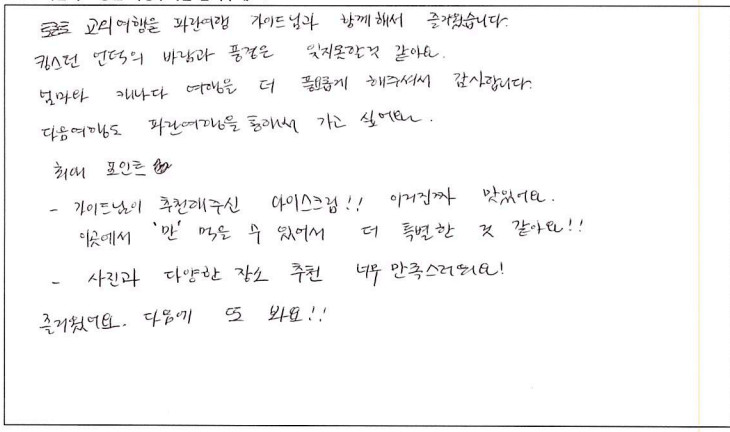 고의여행을 파란여행 가이드님과 함께해서 즐거웠습니다.
킹스턴 언덕의 바람과 풍경은 잊지못할것 같아요.
엄마와 캐나다 여행을 더 풍요롭게 해주셔서 감사합니다.
다음여행도 파란여행을 통해서 가고 싶어요.
최대 포인트
- 가이드님이 추천해주신 아이스크림!! 이거진짜 맛있어요.
이곳에서 '만' 먹을 수 있어서 더 특별한 것 같아요!!
- 사진과 다양한 장소 추천 너무 만족스러워요!
즐거웠어요. 다음에 또 봐요!!